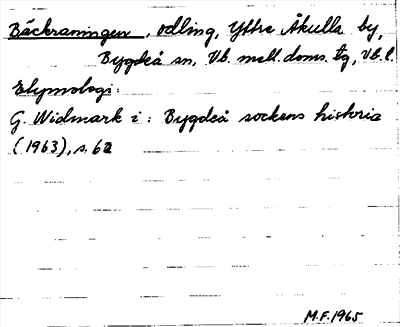 Bäckraningen, odling, Yttre Åkulla by,
Bygdeå sn, Vb. mell. doms. tg, Vb. l.
Etymologi:
G. Widmark i: Bygdeå sockens historia
(1963), s. 62
M.F. 1965